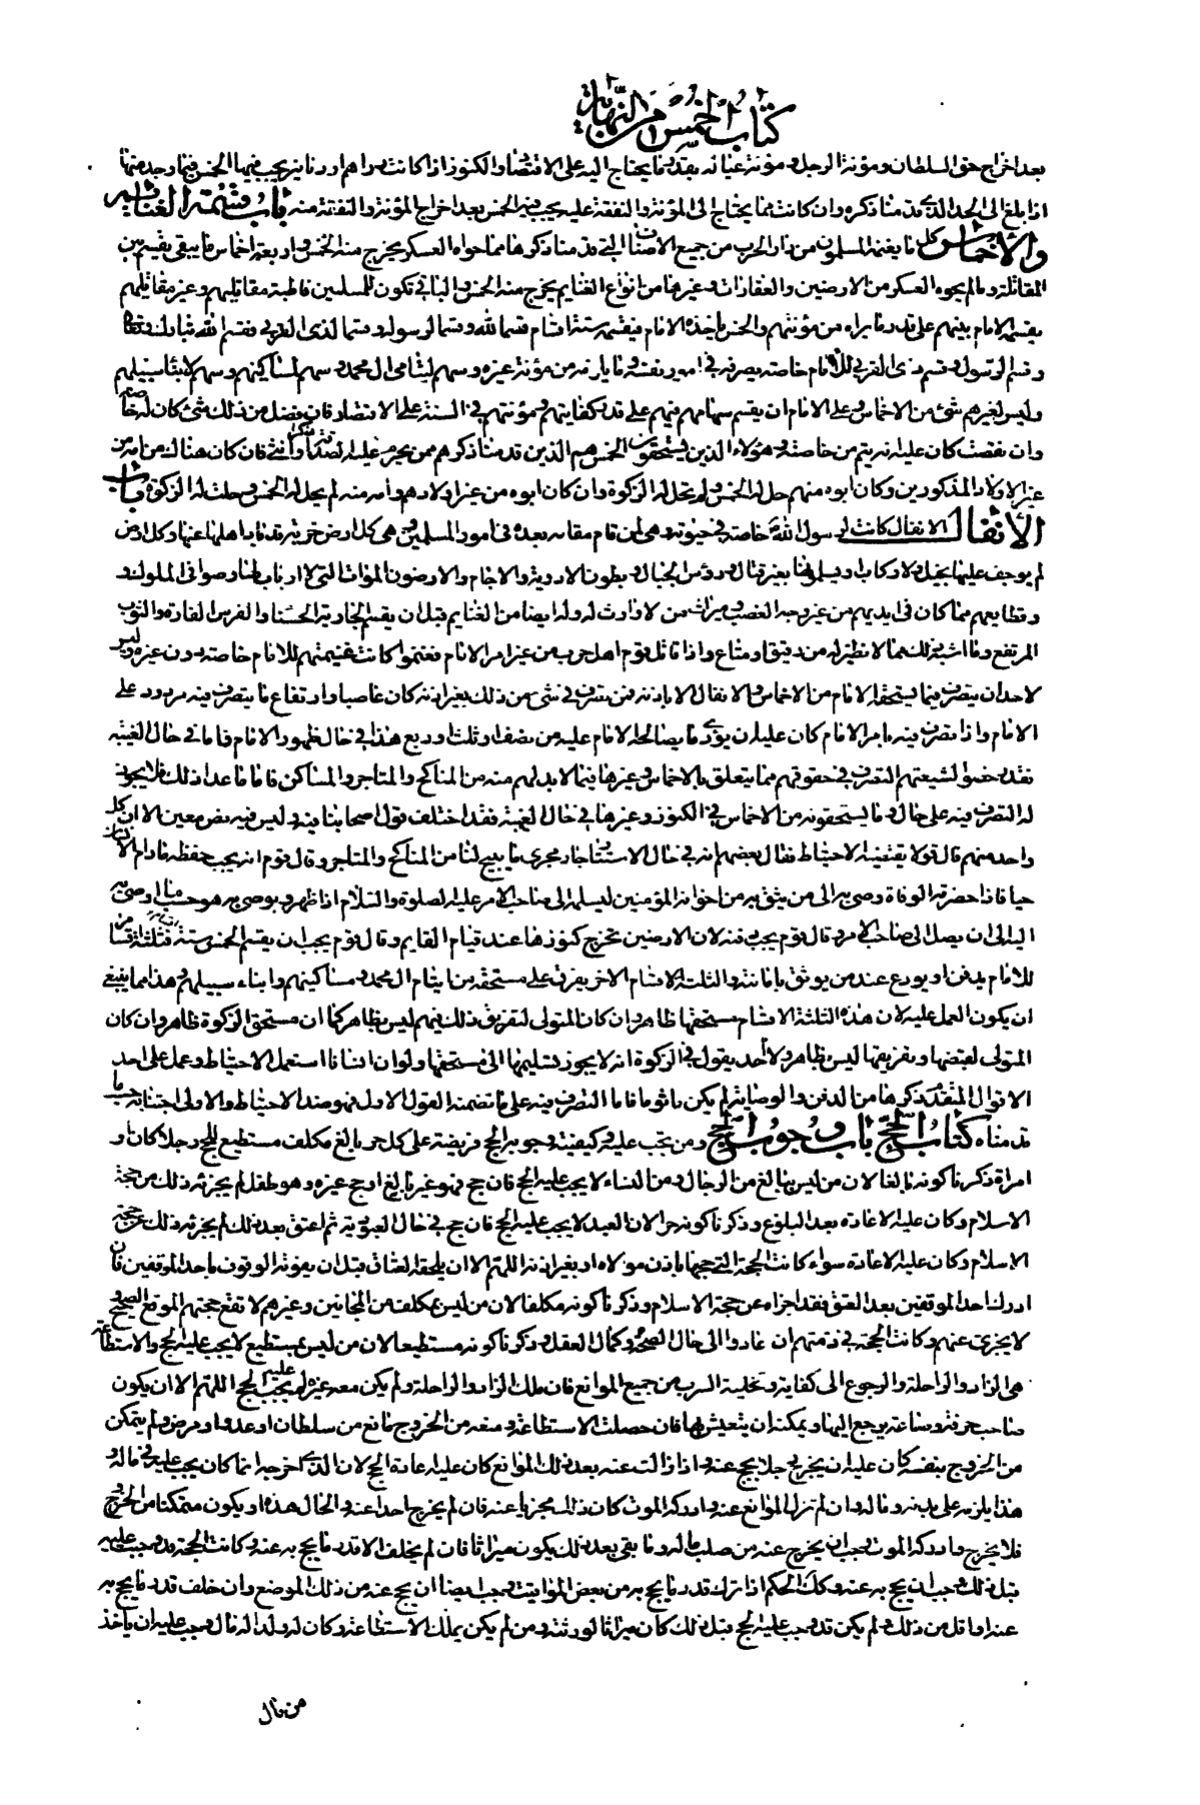 كتاب الخمس من النهاية
بعد اخراج حق السلطان ومؤنة الرجل ومؤنة عياله بقدر ما يحتاج اليه على الاقتصاد والكنوز اذا كانت دراهم او دنانير يجب فيها الخمس فيما وجد منها
اذا بلغ الى الحد الذى قدمنا ذكره وان كانت مما يحتاج الى المؤنة والنفقة عليه يجب فيه الخمس بعد اخراج المؤنة والنفقة منه باب قسمة الغنايم
والاخماس كل ما يغنمه المسلمون من دار الحرب من جميع الاصناف التى قدمنا ذكرها مما حواه العسكر يخرج منه الخمس واربعة اخماس ما يبقى يقسم بين
المقاتلة وما لم يحوه العسكر من الارضين والعقارات وغيرها من انواع الغنايم يخرج منه الخمس والباقى تكون للمسلمين قاطبة مقاتليهم وغير مقاتليهم
يقسمه الامام بينهم على قدر ما يراه من مؤنتهم والخمس ياخذه الامام فيقسمه ستة اقسام قسما لله وقسما لرسوله وقسما لذى القربى فقسم الله تبارك وتعالى
وقسم الرسول وقسم ذى القربى للامام خاصة يصرفه فى امور نفسه وما يلزمه من مؤنة غيره وسهم ليتامى ال محمد وسهم لمساكينهم وسهم لابناء سبيلهم
وليس لغيرهم شئ من الاخماس وعلى الامام ان يقسم سهامهم فيهم على قدر كفايتهم ومؤنتهم فى السنة على الاقتصاد فان فضل من ذلك شئ كان له خاصة
وان نقصت كان عليه ان يتم من خاصته وهؤلاء الذين يستحقون الخمس هم الذين قدمنا ذكرهم ممن يحرم عليه الصدقة ذكرا وانثى فان كان هناك من امه من
غير اولاد المذكورين وكان ابوه منهم حل له الخمس ولم تحل له الزكوة وان كان ابوه من غير اولادهم وامه منهم لم يحل له الخمس وحلت له الزكوة باب
الأنفال الانفال كانت لرسول الله خاصة فى حيوته وهى لمن قام مقامه بعده فى امور المسلمين وهى كل ارض خربة قد باد اهلها عنها وكل ارض
لم يوجف عليها بخيل ولا ركاب او يسلمونها بغير قتال ورؤس الجبال وبطون الاودية والاجام والارضون الموات التى لا ارباب لها وصوافى الملوك
وقطايعهم مما كان فى يديهم من غير وجه الغصب وميراث من لا وارث له وله ايضا من الغنايم قبل ان يقسم الجارية الحسناء والفرس الفاره والثوب
المرتفع وما اشبه ذلك مما لا نظير له من رقيق او متاع واذا قاتل قوم اهل حرب من غير امر الامام فغنموا كانت غنيمتهم للامام خاصة دون غيره وليس
لاحد ان يتصرف فيما يستحقه الامام من الاخماس والانفال الا باذنه فمن تصرف فى شئ من ذلك بغير اذنه كان غاصبا وارتفاع ما يتصرف فيه مردود على
الامام واذا تصرف فيه بامر الامام كان عليه ان يؤدى ما يصالحه الامام عليه من نصف او ثلث او ربع هذا فى حال ظهور الامام فاما فى حال الغيبة
فقد رخصوا لشيعتهم التصرف فى حقوقهم مما يتعلق بالاخماس وغيرها فيما لا بد لهم منه من المناكح والمتاجر والمساكن فاما ما عدا ذلك فلا يجوز
له التصرف فيه على حال وما يستحقونه من الاخماس فى الكنوز وغيرها فى حال الغيبة فقد اختلف قول اصحابنا فيه وليس فيه نص معين الا ان كل
واحد منهم قال قولا يقتضيه الاحتياط فقال بعضهم انه فى حال الاستتار جار مجرى ما ابيح لنا من المناكح والمتاجر وقال قوم انه يجب حفظه مادام الانسان
حيا فاذا حضرته الوفاة وصى به الى من يثق به من اخوانه المؤمنين ليسلمه الى صاحب الامر عليه الصلوة والسلام اذا ظهر ويوصى به هو حسب ما اوصى به
اليه الى ان يصل الى صاحب الامر وقال قوم يجب دفنه لان الارضين تخرج كنوزها عند قيام القايم وقال قوم يجب ان يقسم الخمس ستة فثلثة اقسام
للامام يدفن او يودع عند من يوثق بامانته والثلثة الاقسام الاخر يفرق على مستحقه من ايتام ال محمد ومساكينهم وابناء سبيلهم وهذا مما ينبغى
ان يكون العمل عليه لان هذه الثلثة الاقسام مستحقها ظاهر وان كان المتولى لتفريق ذلك فيهم ليس بظاهر كما ان مستحق الزكوة ظاهر وان كان
المتولى لقبضها وتفريقها ليس بظاهر ولا احد يقول فى الزكوة انه لا يجوز تسليمها الى مستحقها ولو ان انسانا استعمل الاحتياط وعمل على احد
الاقوال المتقدم ذكرها من الدفن والوصاية لم يكن ماثوما فاما التصرف فيه على ما تضمنه القول الاول فهو ضد الاحتياط والاولى اجتنابه حسب ما
قدمناه كتاب الحج باب وجوب الحج ومن يجب عليه وكيفيته وجوبه الحج فريضة على كل حر بالغ مكلف مستطيع للحج رجلا كان او
امراة ذكرنا كونه بالغا لان من ليس ببالغ من الرجال ومن النساء لا يجب عليه الحج فان حج فهو غير بالغ او حج غيره وهو طفل لم يجزئه ذلك من حجة
الاسلام وكان عليه الاعادة بعد البلوغ وذكرنا كونه حرا لان العبد لا يجب عليه الحج فان حج فى حال العبودية ثم اعتق بعد ذلك لم يجزئه ذلك عن حجة
الاسلام وكان عليه الاعادة سواء كانت الحجة التى حجها باذن مولاه او بغير اذنه اللهم الا ان يلحقه العتاق قبل ان يفوته الوقوف باحد الموقفين فان
ادرك احد الموقفين بعد العتق فقد اجزاه عن حجة الاسلام وذكرنا كونه مكلفا لان من ليس بمكلف من المجانين وغيرهم لا تقع حجتهم الموقع الصحيح
لا يجزى عنهم وكانت الحجة فى ذمتهم ان عادوا الى حال الصحة وكمال العقل وذكرنا كونه مستطيعا لان من ليس بمستطيع لا يجب عليه الحج والاستطاعة
هى الزاد والراحلة والرجوع الى كفاية وتخلية السرب من جميع الموانع فان ملك الزاد والراحلة ولم يكن معه غيره لم يجب عليه الحج اللهم الا ان يكون
صاحب حرفة وصناعة يرجع اليها ويمكنه ان يتعيش بها فان حصلت الاستطاعة ومنعه من الخروج مانع من سلطان او عدو او مرض ولم يتمكن
من الخروج بنفسه كان عليه ان يخرج رجلا يحج عنه واذا زالت عنه بعد ذلك الموانع كان عليه اعادة الحج لان الذى اخرجه انما كان يجب عليه فى ماله و
هذا يلزمه على بدنه وماله وان لم تزل الموانع عنه وادركه الموت كان ذلك مجزيا عنه فان لم يخرج احدا عنه والحال هذه او يكون متمكنا من الخروج
فلا يخرج وادركه الموت وجب ان يخرج عنه من صلب ماله وما بقى بعد ذلك يكون ميراثا فان لم يخلف الا قدر ما يحج به عنه وكانت الحجة قد وجبت عليه
قبل ذلك وجب ان يحج به عنه وكذلك الحكم اذا ترك قدر ما يحج به من بعض المواقيت وجب ايضا ان يحج عنه من ذلك الموضع وان خلف قدر ما يحج به
عنه او اقل من ذلك ولم يكن قد وجب عليه الحج قبل ذلك كان ميراثا لورثته ومن لم يكن يملك الاستطاعة وكان له ولد له مال وجب عليه ان ياخذ
من مال